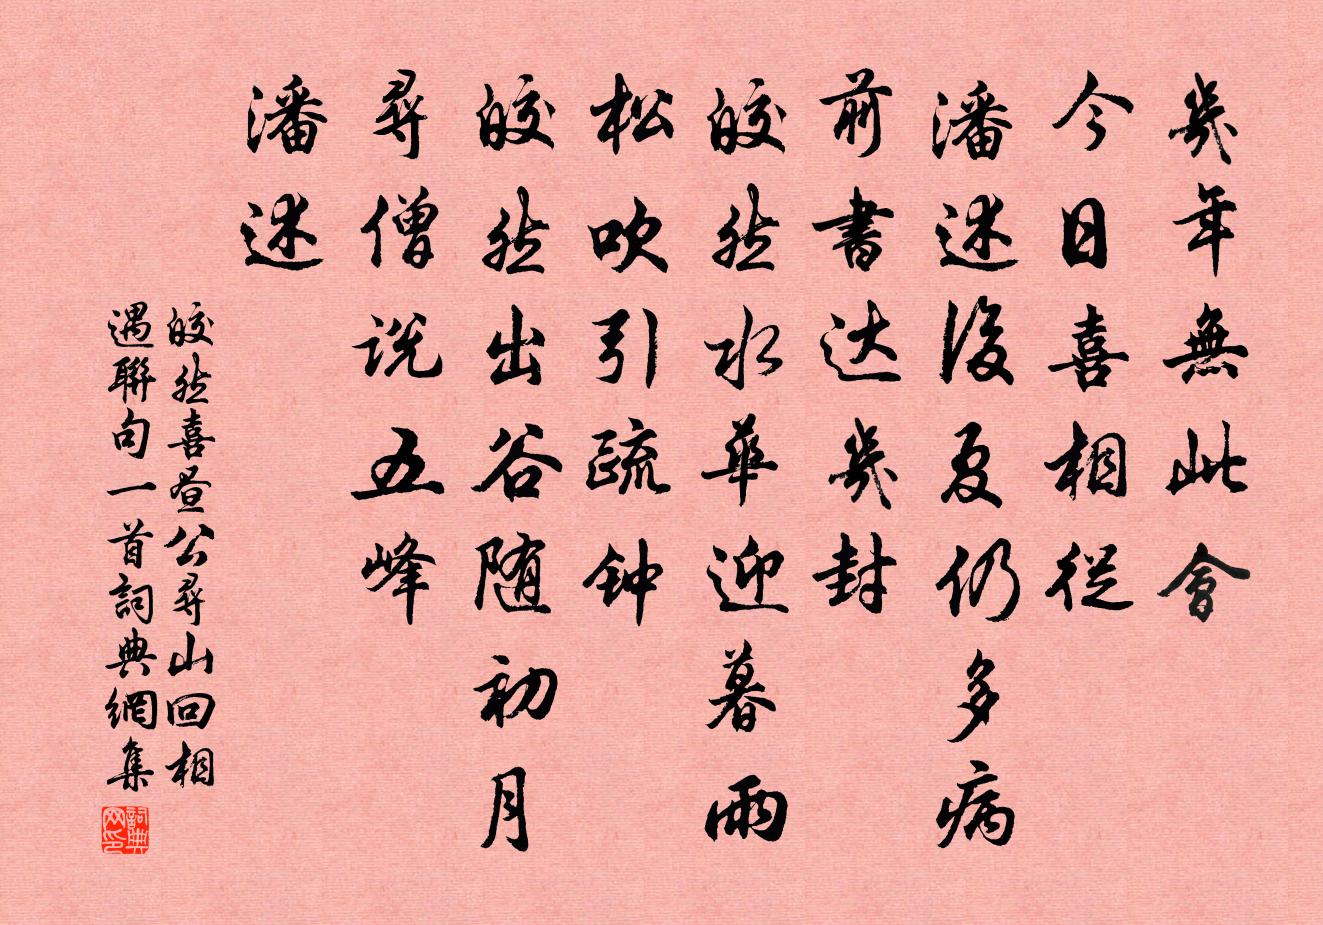 幾年無此會
今日喜相從
潘述後夏仍多病
前書达幾封
皎然水華迎暮雨
松吹引疏钟
皎然出谷随初月
尋僧说五峰
潘述
皎然喜昼公尋山回相
遇聯句一首詞典網集
詞典网印